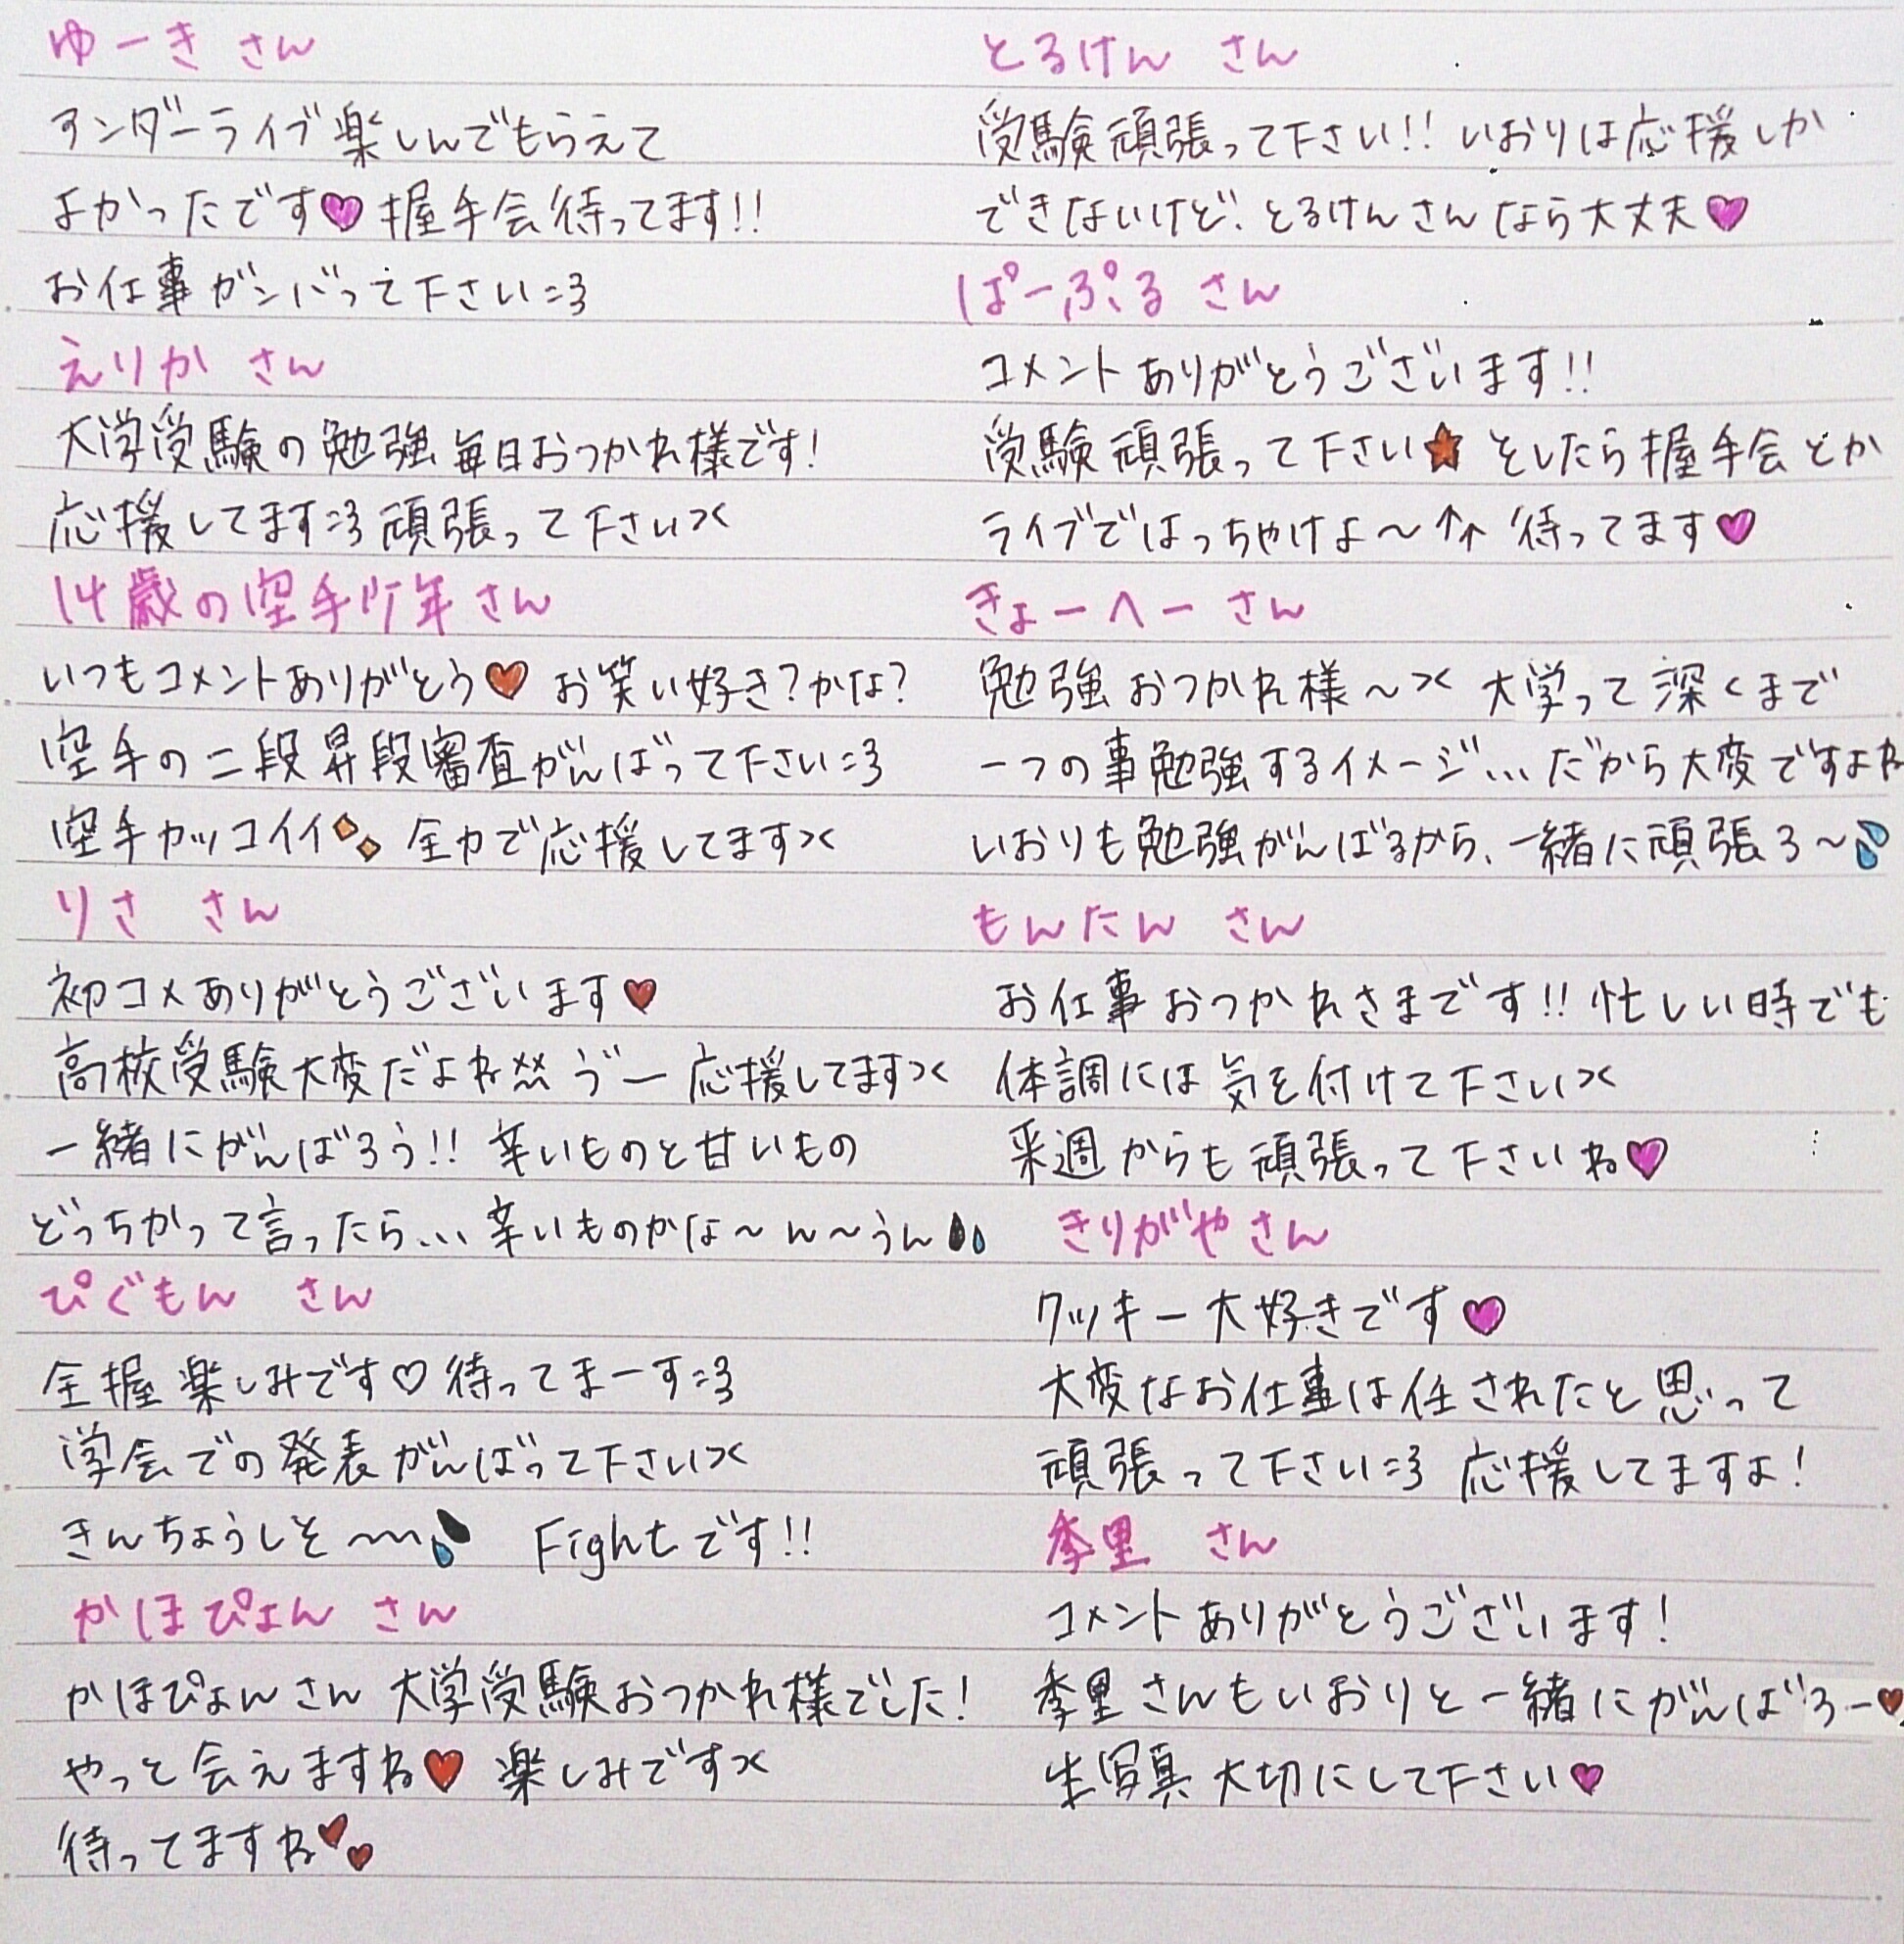 ゆーき さん
アンダーライブ楽しんでもらえて
よかったです♥ 握手会待ってます!!
お仕事ガンバって下さい=3
えりか さん
大学受験の勉強毎日おつかれ様です!
応援してます=3 頑張って下さい><
14歳の空手少年さん
いつもコメントありがとう♥ お笑い好き?かな?
空手の二段昇段審査がんばって下さい=3
空手カッコイイ 全力で応援してます><
りさ さん
初コメありがとうございます♥
高校受験大変だよね ゔー 応援してます><
一緒にがんばろう!! 辛いものと甘いもの
どっちかって言ったら... 辛いものかな〜ん〜うん
ぴぐもん さん
全握楽しみです♡ 待ってまーす=3
学会での発表がんばって下さい><
きんちょうしそ〜 Fightです!!
かほぴょん さん
かほぴょんさん 大学受験おつかれ様でした!
やっと会えますね♥ 楽しみです><
待ってますね♥♥
とるけん さん
受験頑張って下さい!! いおりは応援しか
できないけど、とるけんさんなら大丈夫♥
ぱーぷる さん
コメントありがとうございます!!
受験頑張って下さい★ そしたら握手会とか
ライブではっちゃけよ〜↑↑ 待ってます♥
きょーへー さん
勉強おつかれ様〜>< 大学って深くまで
一つの事勉強するイメージ... だから大変ですよね
いおりも勉強がんばるから、一緒に頑張ろ〜
もんたん さん
お仕事おつかれさまです!! 忙しい時でも
体調には気を付けて下さい><
来週からも頑張って下さいね♥
きりがやさん
クッキー大好きです♥
大変なお仕事は任されたと思って
頑張って下さい=3 応援してますよ!
季里 さん
コメントありがとうございます!
季里さんもいおりと一緒にがんばろー♥
生写真大切にして下さい♥